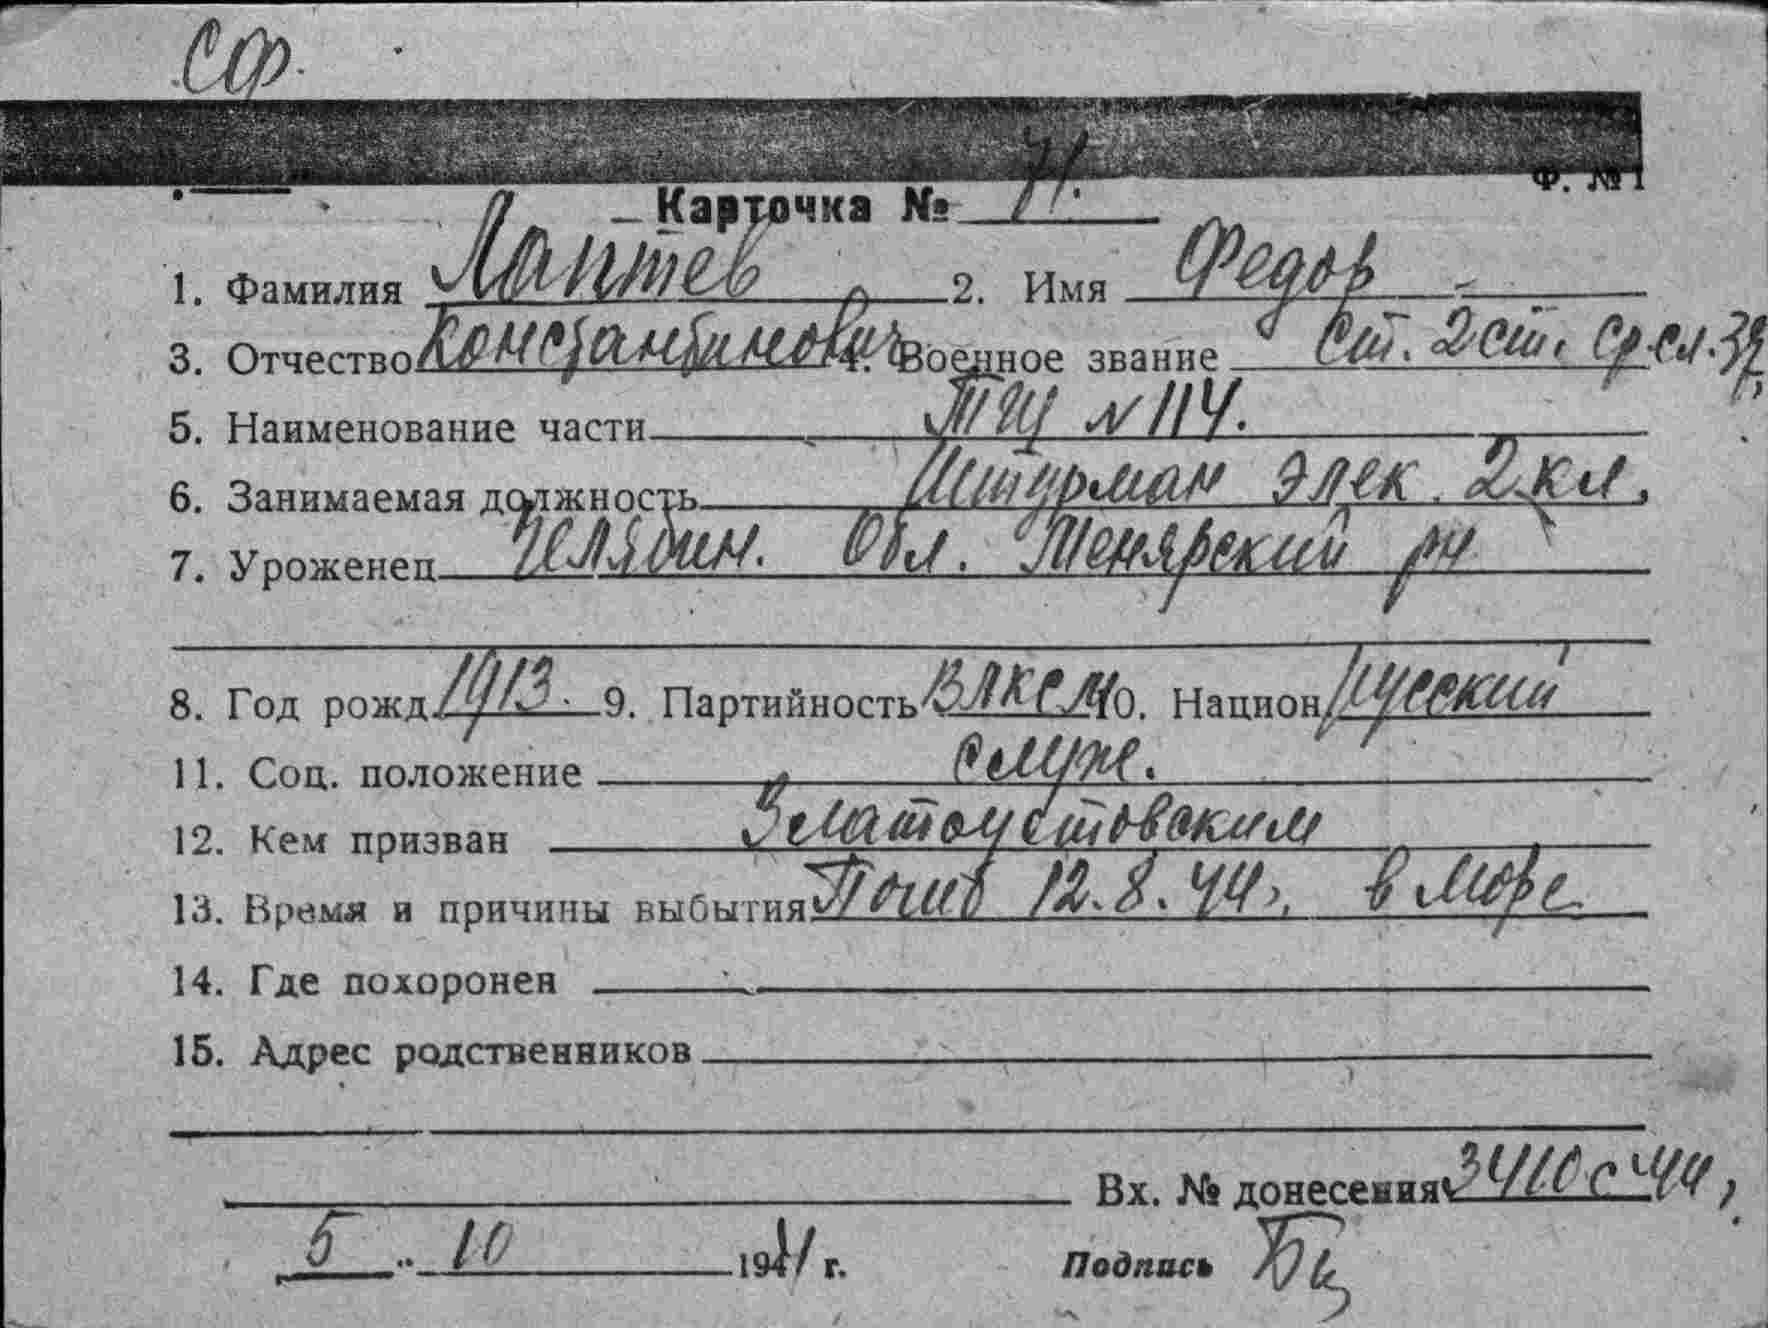 СФ.
Ф. №1
Карточка № 71.
1. Фамилия Лаптев 2. Имя Федор
3. Отчество Константинович 4. Военное звание Ст. 2 ст. Ср.сл.
5. Наименование части ТЩ №114.
6. Занимаемая должность Штурман элек. 2 кл.
7. Уроженец Челябин. Обл. рн
8. Год рожд. 1913. 9. Партийность ВЛКСМ 10. Национ. Русский
11. Соц. положение служ.
12. Кем призван Златоустовским
13. Время и причины выбытия Погиб 12.8.44г. в море
14. Где похоронен
15. Адрес родственников
Вх. № донесения 3410с 44,
5 " 10 1944 г. Подпись